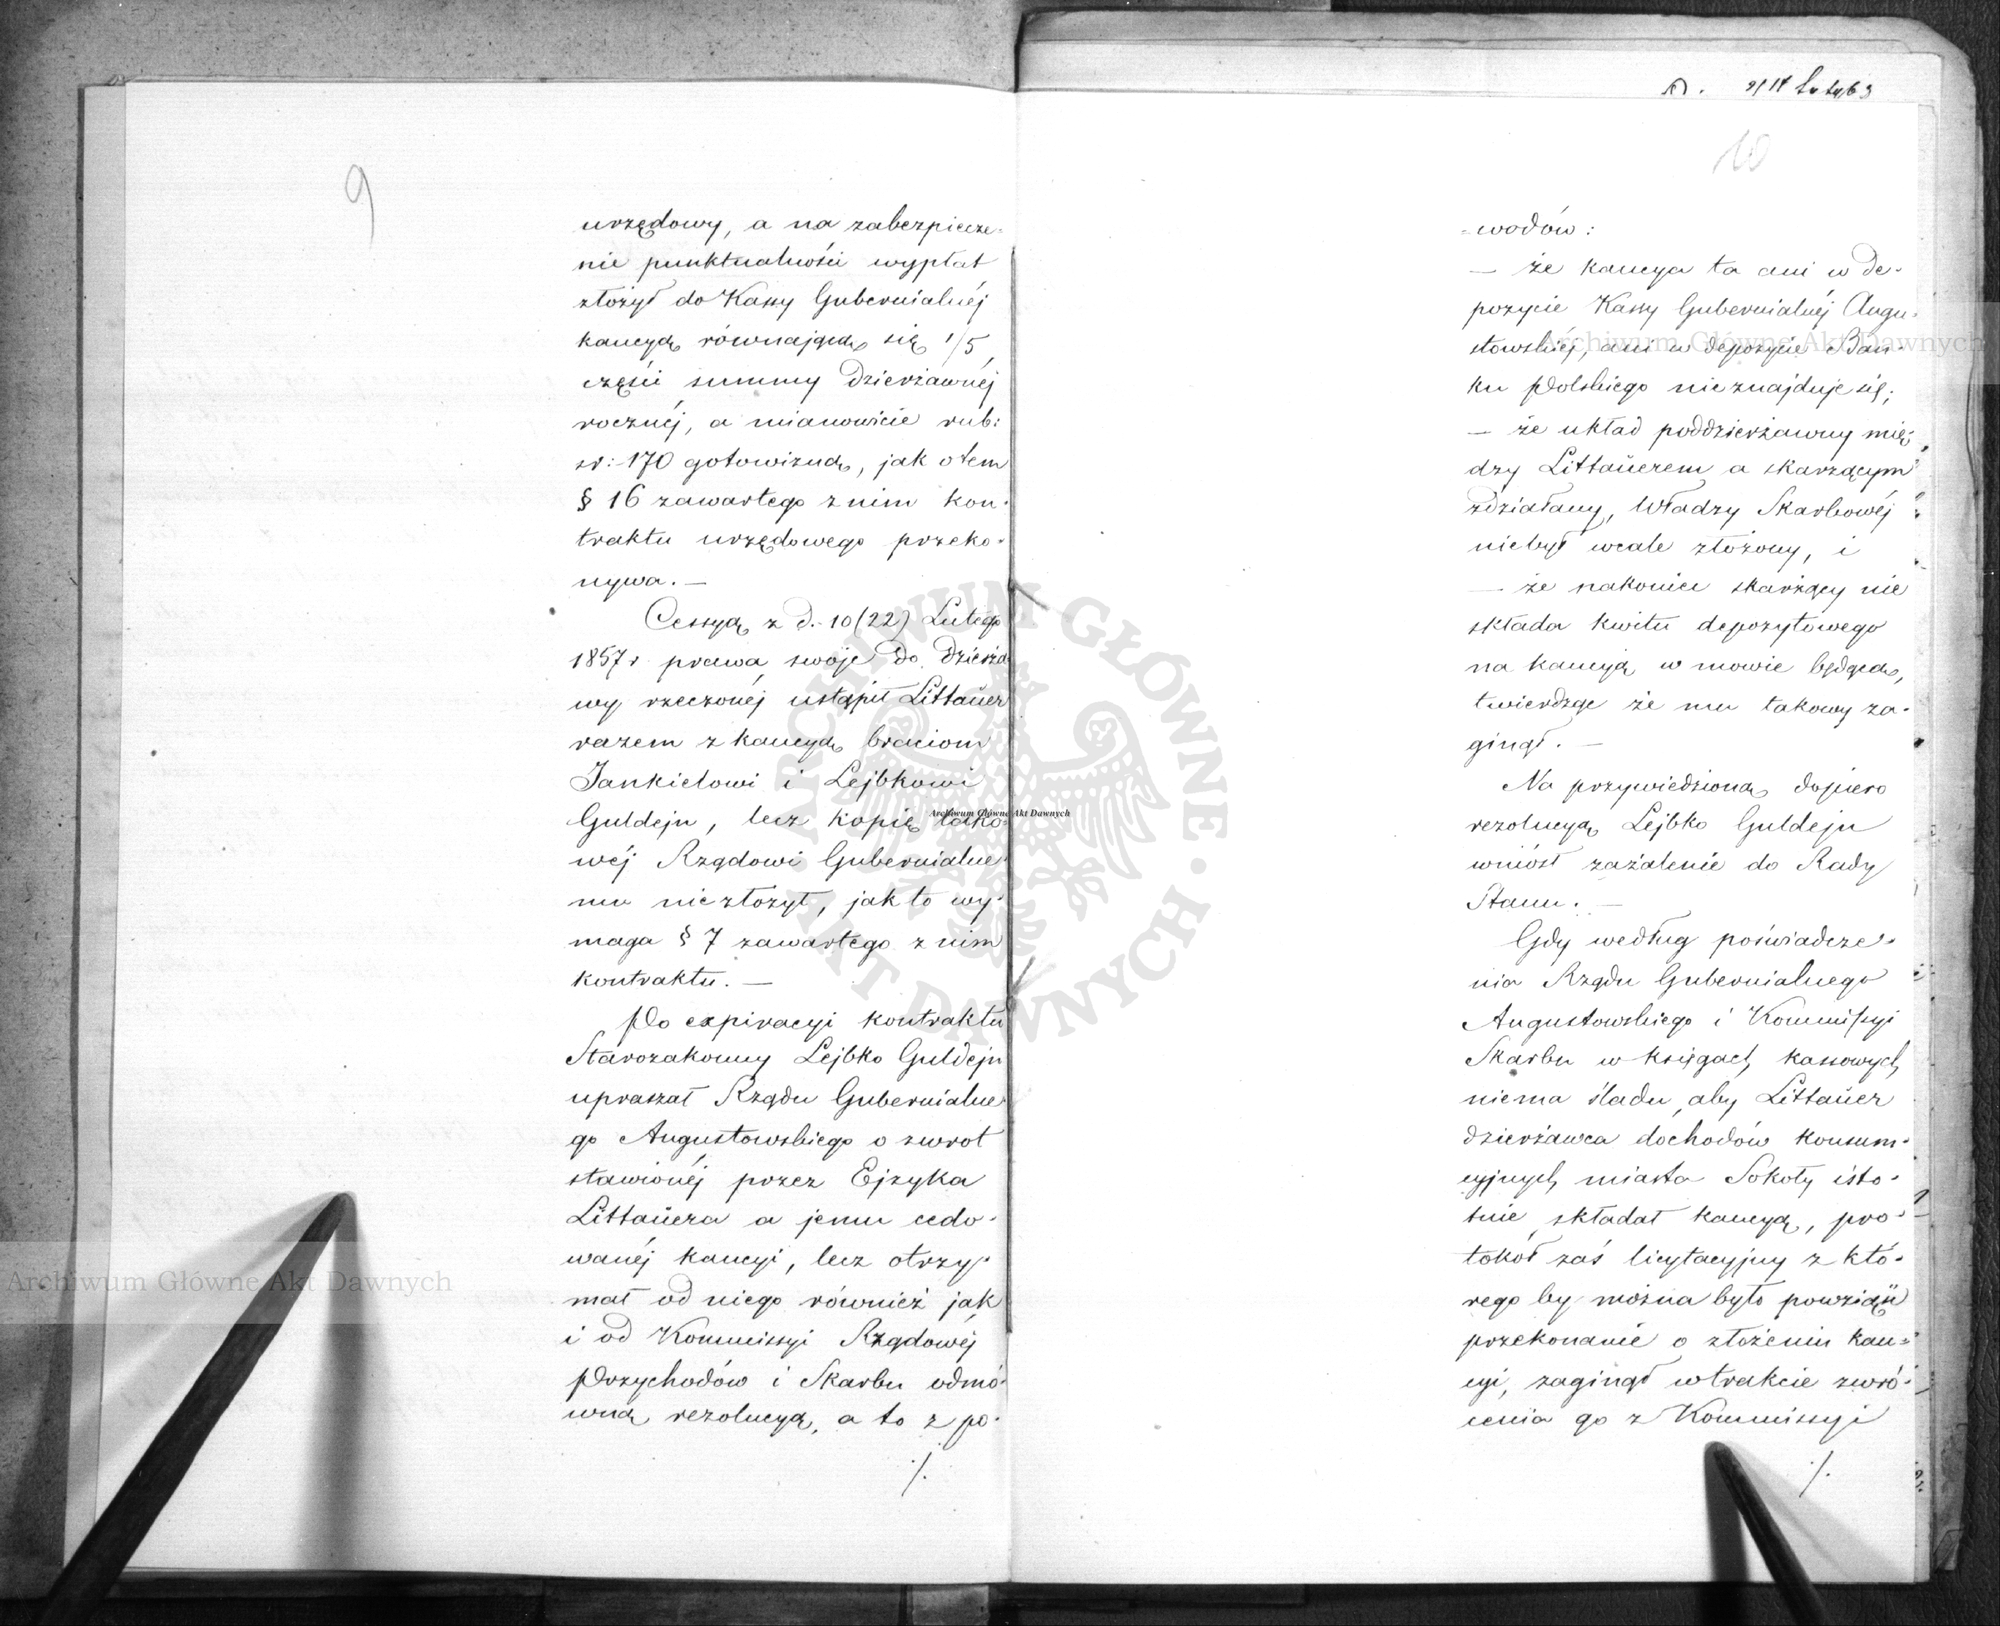 9
urzędowy, a na zabezpiecze-
nie punktualności wypłat
złożył do Kassy Gubernialnéj
kaucyą równającą się 1/5
części summy dzierżawnéj
rocznéj, a mianowicie rub:
sr: 170 gotowizną, jak o tem
§ 16 zawartego z nim kon-
traktu urzędowego przeko-
nywa. —
Cessyą z d. 10 (22) Lutego
1857 r prawa swoje do dzierża
wy rzeczonéj ustąpił Littaüer
razem z kaucyą braciom
Jankielowi i Lejbkowi
Guldejn, lecz kopię tako-
wéj Rządowi Gubernialne-
mu nie złożył, jak to wy-
maga § 7 zawartego z nim
kontraktu. —
Po expiracyi kontraktu
Starozakonny Lejbko Guldejn
upraszał Rządu Gubernialne
go Augustowskiego o zwrot
stawionéj przez Ejzyka
Littaüera a jemu cedo-
wanéj kaucyi, lecz otrzy-
mał od niego również jak
i od Kommissyi Rządowéj
Przychodów i Skarbu odmó-
wną rezolucyą, a to z po-
./.
9/14 Luty 63
10
-wodów:
— że kaucya ta ani w de-
pozycie Kassy Gubernialnéj Augu-
stowskiéj, ani w depozycie Ban-
ku Polskiego nie znajduje się;
— że układ poddzierżawny mię
dzy Littaüerem a skarzącym
zdziałany, Władzy Skarbowéj
niebył wcale złożony, i
— że nakoniec skarżący nie
składa kwitu depozytowego
na kaucyą w mowie będącą,
twierdząc że mu takowy za-
ginął. —
Na przywiedzioną dopiero
rezolucyą Lejbko Guldejn
wniósł zażalenie do Rady
Stanu. —
Gdy według poświadcze-
nia Rządu Gubernialnego
Augustowskiego i Kommissyi
Skarbu w księgach kassowych
niema śladu, aby Littaüer
dzierżawca dochodów konsum-
cyjnych miasta Sokoły isto-
tnie składał kaucyą, pro-
tokół zaś licytacyjny z któ-
rego by można było powziąść
przekonanie o złożeniu kau-
cyi, zaginął w trakcie zwró-
cenia go z Kommissyi
./.
Archiwum Główne Akt Dawnych
Archiwum Główne Akt Dawnych
Archiwum Główne Akt Dawnych
ARCHIWUM GŁÓWNE AKT DAWNYCH